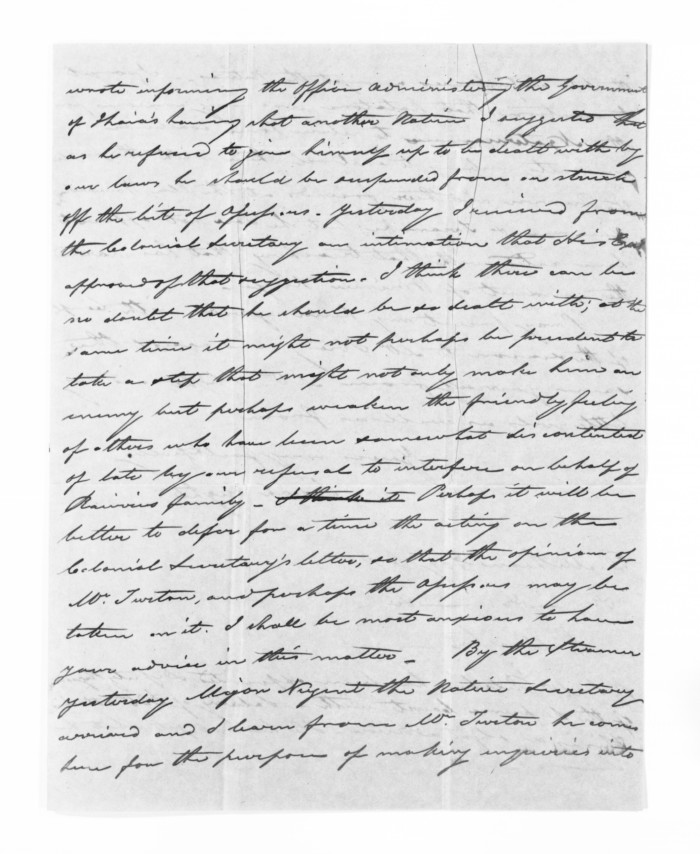 wrote informing the Officer Administering the Government
of Ihaia's having shot another Native I suggested that
as he refused to give himself up to be dealt with by
our laws he should be suspended from or struck
off the list of Assessors. Yesterday I received from
the Colonial Secretary an intimation that His
approved of that suggestion. I think there can be
no doubt that he should be so dealt with; at the
same time it might not perhaps be prudent to
take a step that might not only make him an
enemy but perhaps weaken the friendly feeling
of others who have been somewhat discontented
of late by our refusal to interfere on behalf of
Rawiris family - I think it Perhaps it will be
better to defer for a time the acting on the
Colonial Secretary's letter, so that the opinion of
Mr. Turton, and perhaps the Assessors may be
taken on it. I shall be most anxious to have
your advice in this matter - By the Steamer
yesterday Major Nugent the Native Secretary
arrived and I learn from Mr. Turton he comes
here for the purpose of making inquiries into